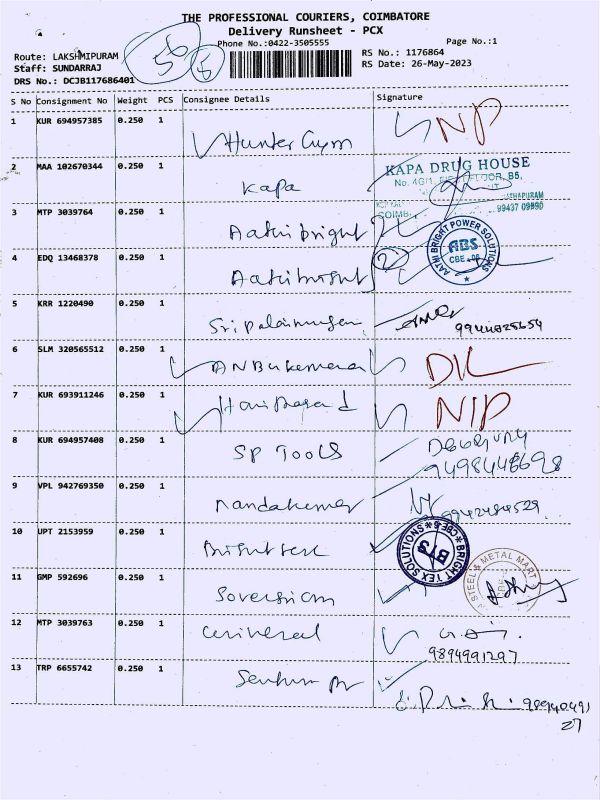 THE PROFESSIONAL COURIERS, COIMBATORE
Delivery Runsheet - PCX
Phone No.:0422-3505555
Page No.:1
Route: LAKSHMIPURAM
Staff: SUNDARRAJ
DRS No.: DCJB117686401
56
RS No.: 1176864
RS Date: 26-May-2023
S No Consignment No Weight PCS Consignee Details Signature
1 KUR 694957385 0.250 1 Hunter Gym NP
2 MAA 102670344 0.250 1 Kapa
KAPA DRUG HOUSE
COIMB
99437 09890
3 MTP 3039764 0.250 1 Aathi bright
AATHI BRIGHT POWER SOLUTIONS
ABS
4 EDQ 13468378 0.250 1 2
5 KRR 1220490 0.250 1
6 SLM 320565512 0.250 1 DK
7 KUR 693911246 0.250 1 Hari Prasad NIP
8 KUR 694957408 0.250 1 SP TOOLS
9498448698
9 VPL 942769350 0.250 1 Nandakumar
10 UPT 2153959 0.250 1
BRIGHT TEX SOLUTIONS
BTS
11 GMP 592696 0.250 1
STEEL & METAL MART
12 MTP 3039763 0.250 1 Universal
9894991297
13 TRP 6655742 0.250 1
27